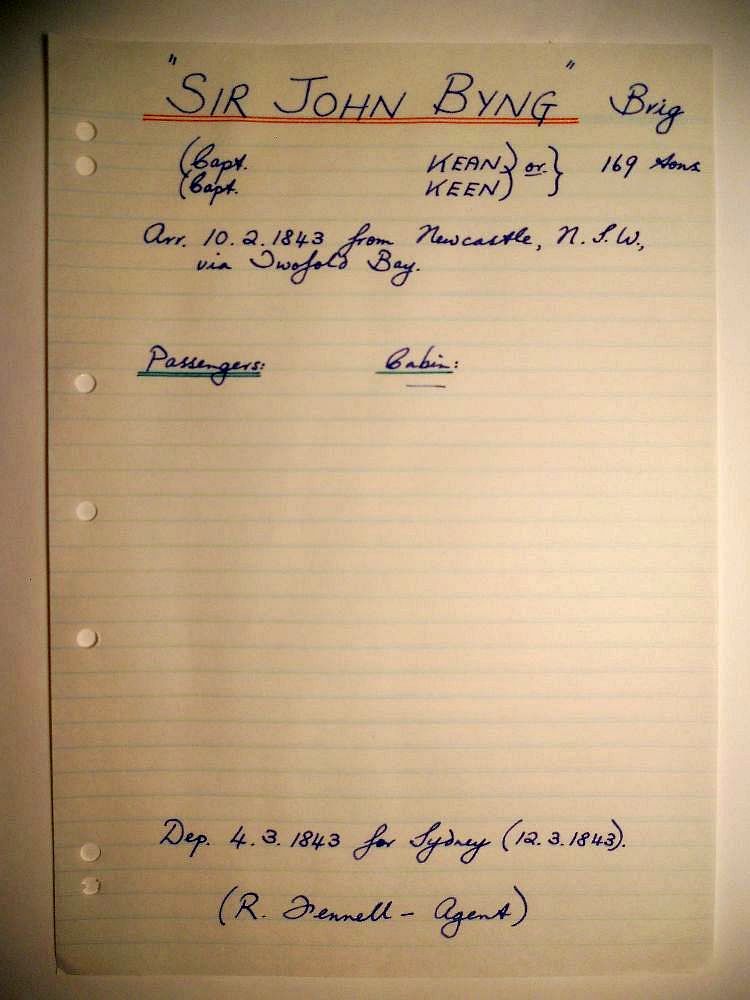 "SIR JOHN BYNG" Brig
(Capt. KEAN) or } 169 tons
(Capt. KEEN)
Arr. 10.2.1843 from Newcastle, N.S.W.,
via Twofold Bay.
Passengers: Cabin:
—
Dep. 4.3.1843 for Sydney (12.3.1843).
(R. Fennell - Agent)